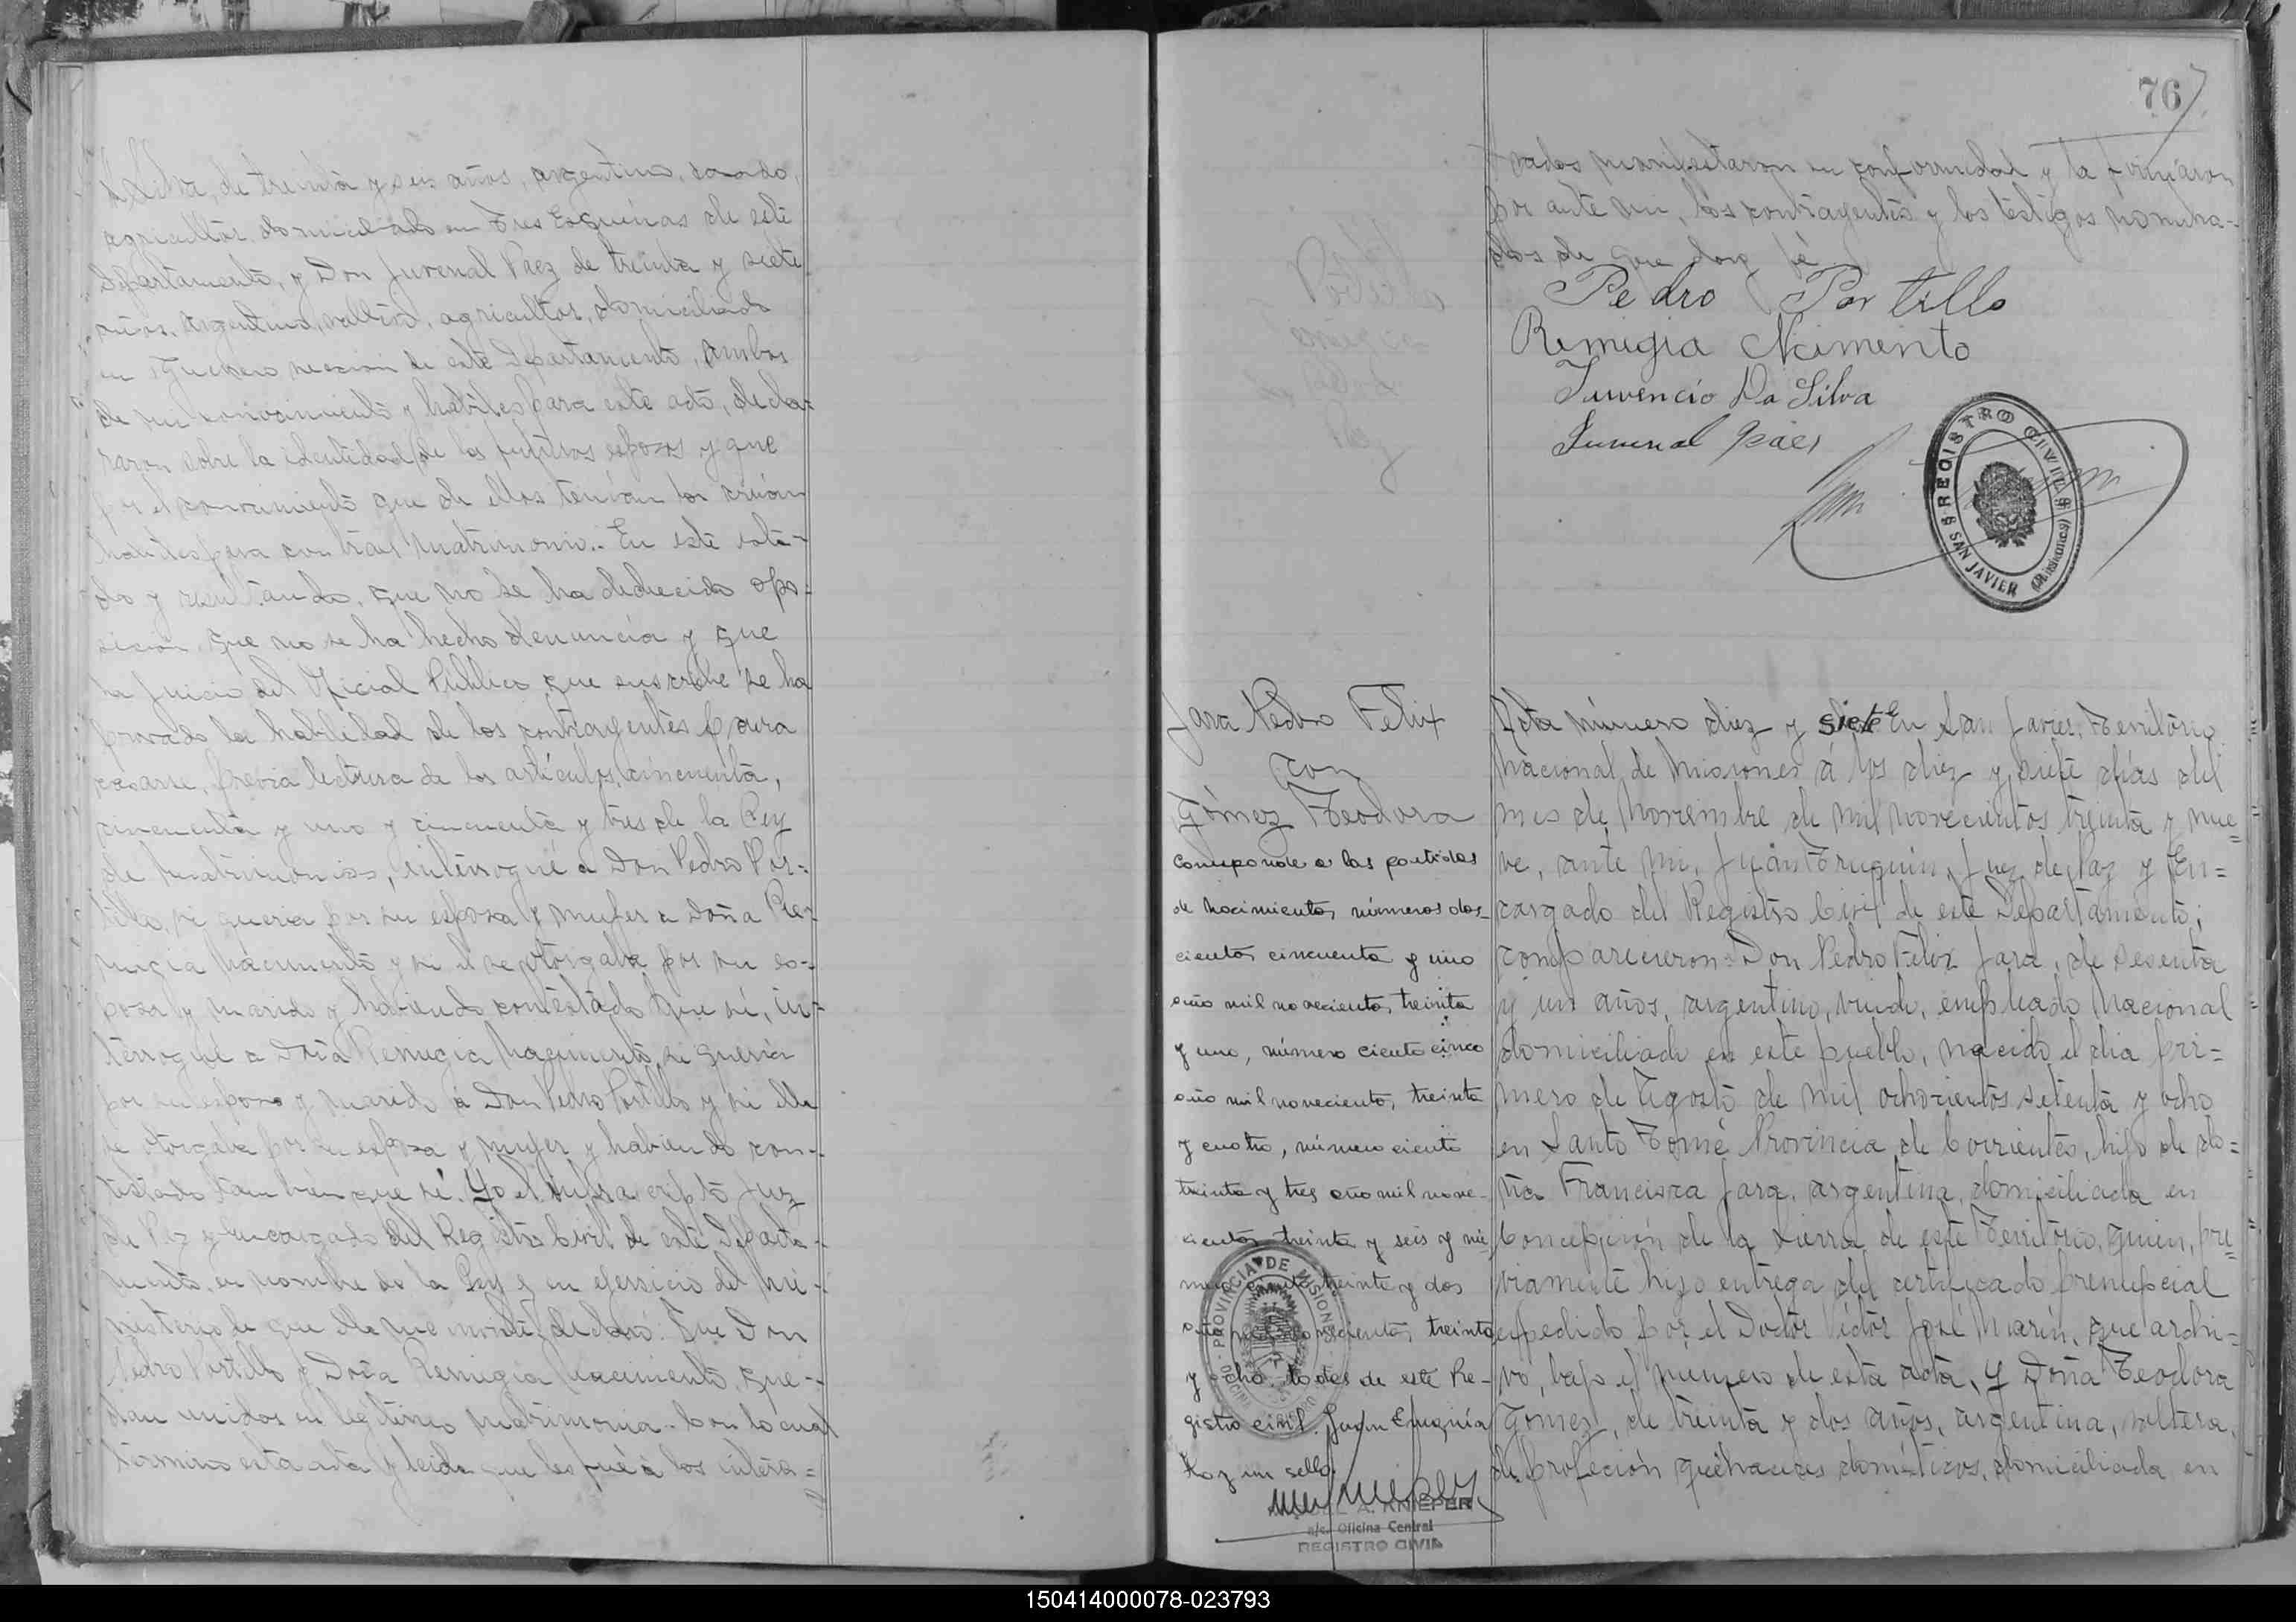 Silva, de treinta y seis años, argentino, casado,
agricultor, domiciliado en Tres Esquinas de este
Departamento, y Don Juvenal Paez de treinta y siete
años, argentino, soltero, agricultor, domiciliado
en sección de este Departamento, ambos
de mi conocimiento y hábiles para este acto, decla-
raron sobre la identidad de los futuros esposos y que
por el conocimiento que de ellos tenían los creían
hábiles para contraer matrimonio.. En este esta-
do y resultando, que no se ha deducido opo-
sición, que no se ha hecho denuncia y que
a juicio del Oficial Público que suscribe se ha
probado la habilidad de los contrayentes para
casarse, previa lectura de los artículos cincuenta,
cincuenta y uno y cincuenta y tres de la Ley
de matrimonios, interrogué a Don Pedro Por-
tillo, si quería por su esposa y mujer a Doña Re-
migia Nacimento y si él se otorgaba por su es-
poso y marido y habiendo contestado que sí, in-
terrogué a Doña Remigia Nacimento, si quería
por su esposo y marido á Don Pedro Portillo y si ella
se otorgaba por su esposa y mujer y habiendo con-
testado también que sí. Yo el infrascripto Juez
de Paz y encargado del Registro Civil de este Departa-
mento, en nombre de la Ley y en ejersicio del mi-
nisterio que ella me declaró: Que Don
Pedro Portillo y Doña Remigia Nacimento, que-
dan unidos en legítimo matrimonio. Con lo cual
terminó esta acta y leída que les fué à los intere-
76
sados manifestaron su conformidad y la firmaron
por ante mi, los contrayentes y los testigos nombra-
dos de que doy fé
Pedro Portillo
Remigia Ncimento
Juvencio Da Silva
Juvenal Páes
REGISTRO CIVIL
SAN JAVIER (Misiones)
Jara Pedro Felix
con
Gómez Teodora
Corresponde a las partidas
de nacimientos números dos-
cientos cincuenta y uno
año mil novecientos treinta
y uno, número ciento cinco
año mil novecientos, treinta
y cuatro, número ciento
treinta y tres año mil nove-
cientos treinta y seis y nú-
mero treinta y dos
año mil novecientos, treinta
y ocho, todos de este Re-
gistro civil. Juan Eruquin
Hay un sello
PROVINCIA DE MISIONES
A. KNIEPER
a/c. Oficina Central
REGISTRO CIVIL
Acta número diez y siete En San Javier, Territorio
Nacional, de Misiones á los diez y siete días del
mes de Noviembre de mil novecientos treinta y nue=
ve, ante mi, Juan Eruquin, Juez de Paz y En=
cargado del Registro Civil de este Departamento;
comparecieron: Don Pedro Felix Jara, de sesenta
y un años, argentino, viudo, empleado Nacional
domiciliado en este pueblo, nacido el dia pri=
mero de Agosto de mil ochocientos setenta y ocho
en Santo Tomé Provincia de Corrientes, hijo de do=
ña Francisca Jara, argentina, domiciliada en
Concepción de la Sierra de este Territorio, quien, pre=
viamente hizo entrega del certificado prenupcial
expedido por el Doctor Víctor José Marin, que archi=
vo, bajo el número de esta acta, y Doña Teodora
Gomez, de treinta y dos años, argentina, soltera,
de profeción quehaceres domésticos, domiciliada en
150414000078-023793